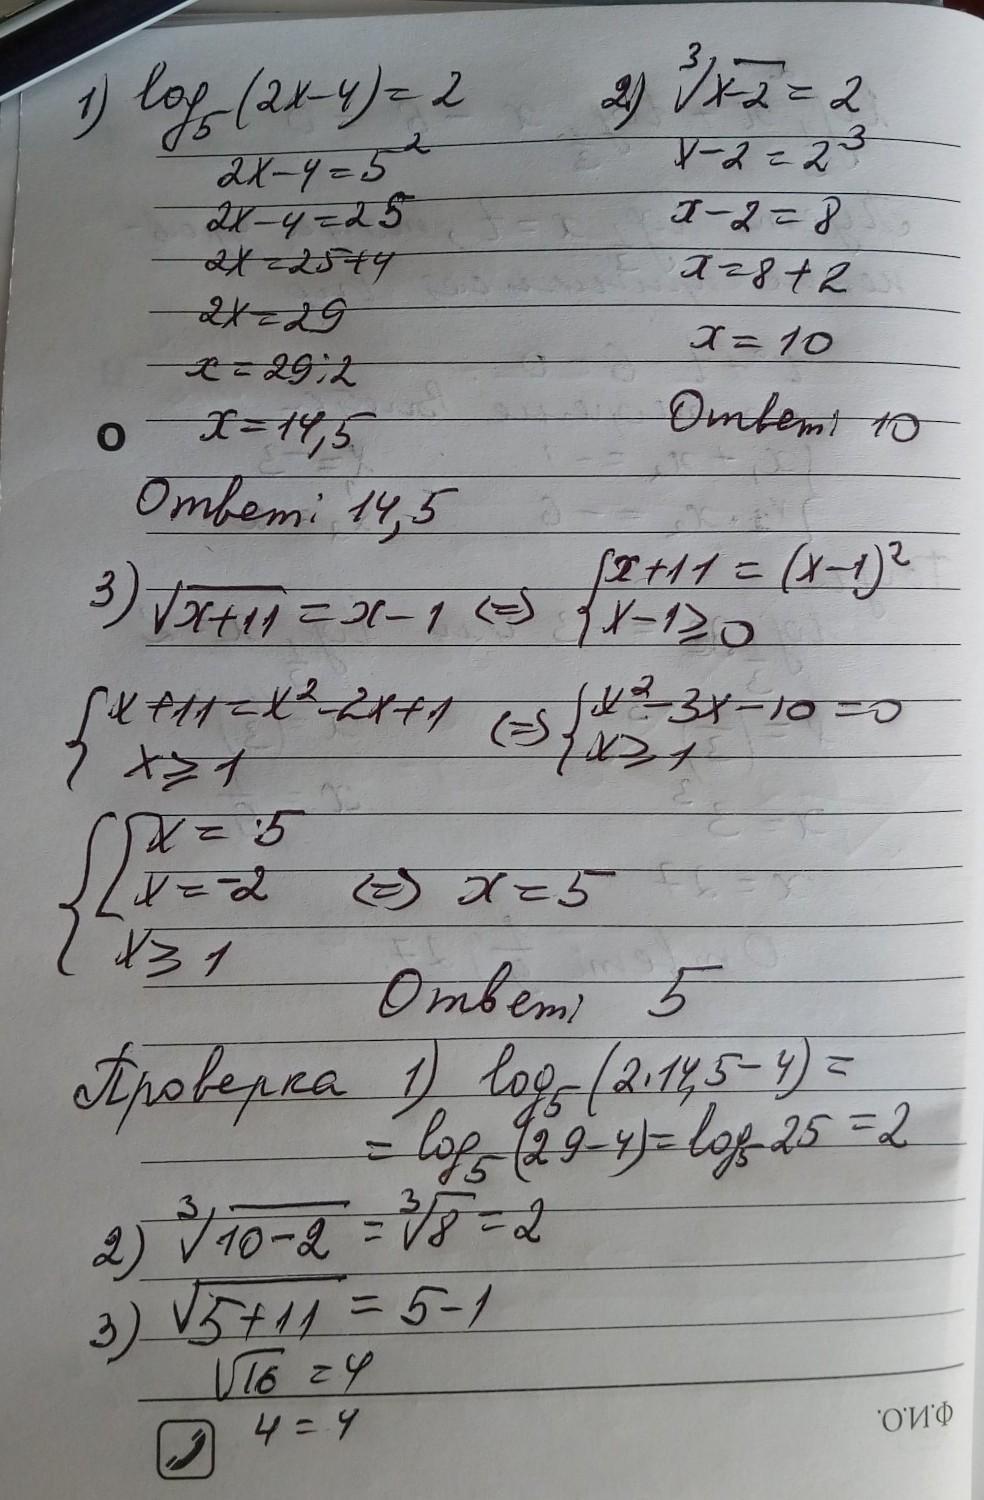 1) log₅(2x-4)=2
2x-4=5²
2x-4=25
2x=25+4
2x=29
x=29:2
x=14,5
Ответ: 14,5
2) ∛(x-2) = 2
x-2=2³
x-2=8
x=8+2
x=10
Ответ: 10
3) √(x+11) = x-1 <=> { x+11=(x-1)² ; x-1≥0
{ x+11=x²-2x+1 ; x≥1 <=> { x²-3x-10=0 ; x≥1
{ [ x=5 ; x=-2 ; x≥1 <=> x=5
Ответ: 5
Проверка 1) log₅(2·14,5-4)=
= log₅(29-4)=log₅25=2
2) ∛(10-2) = ∛8 = 2
3) √(5+11) = 5-1
√16 = 4
4=4
Ф.И.О.